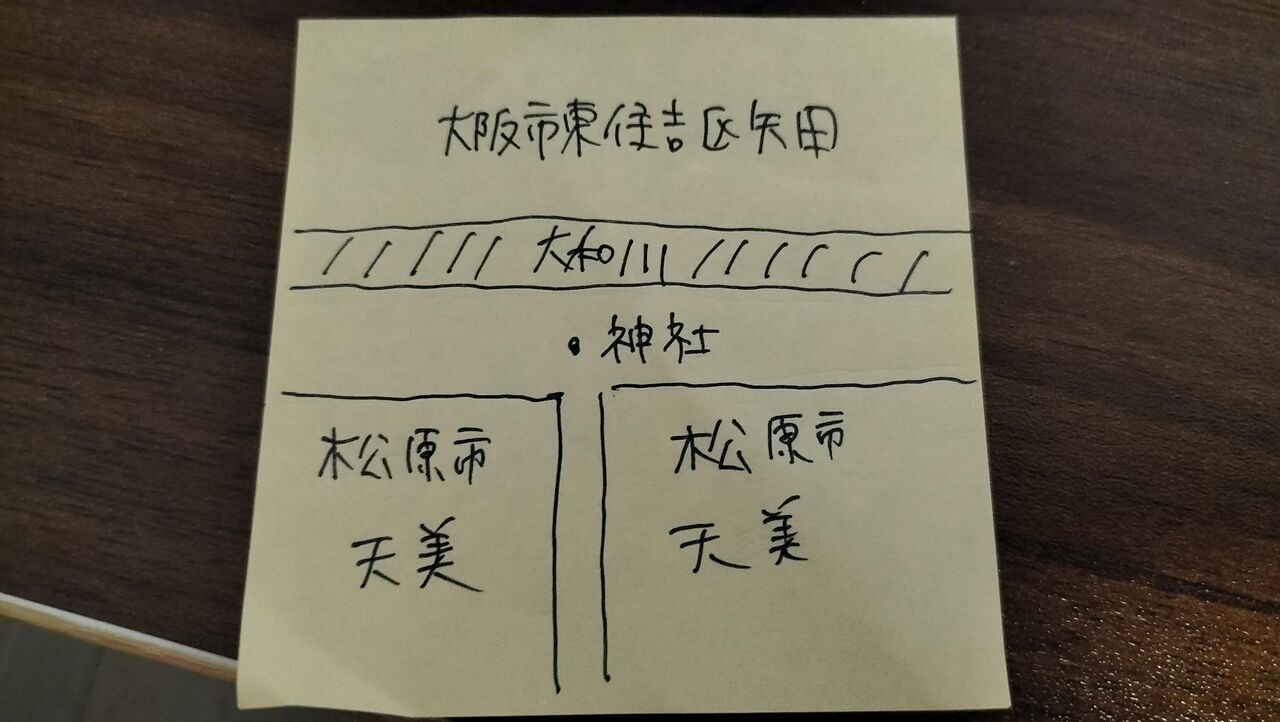 大阪市東住吉区矢田
大和川
神社
松原市
天美
松原市
天美